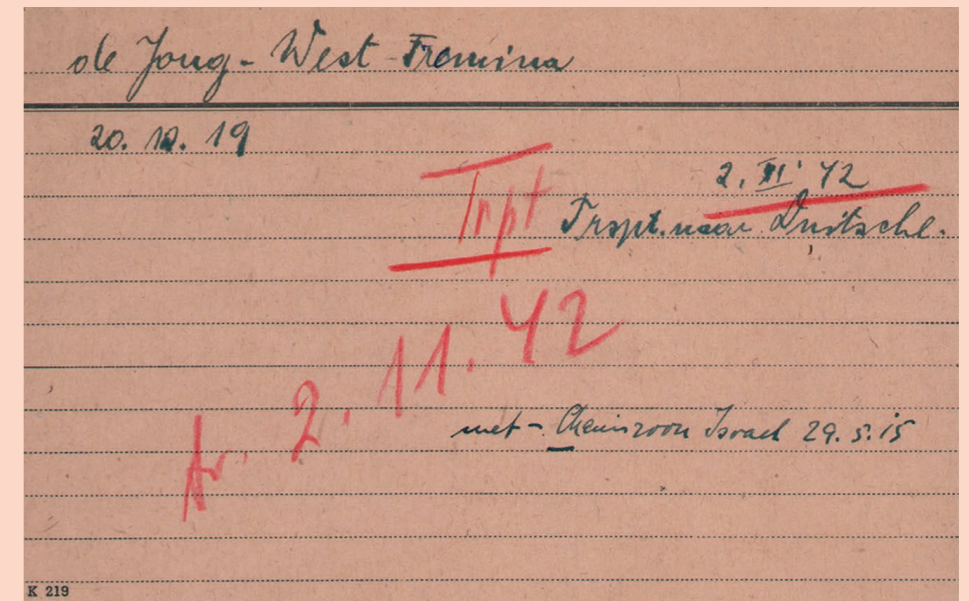 de Jong - West - Fremina
20. 12. 19
2. XI. 42
Trpt Trspt. naar Duitschl.
tr. 2. 11. 42
met - Cheinizoon Israel 29. 5. 15
K 219